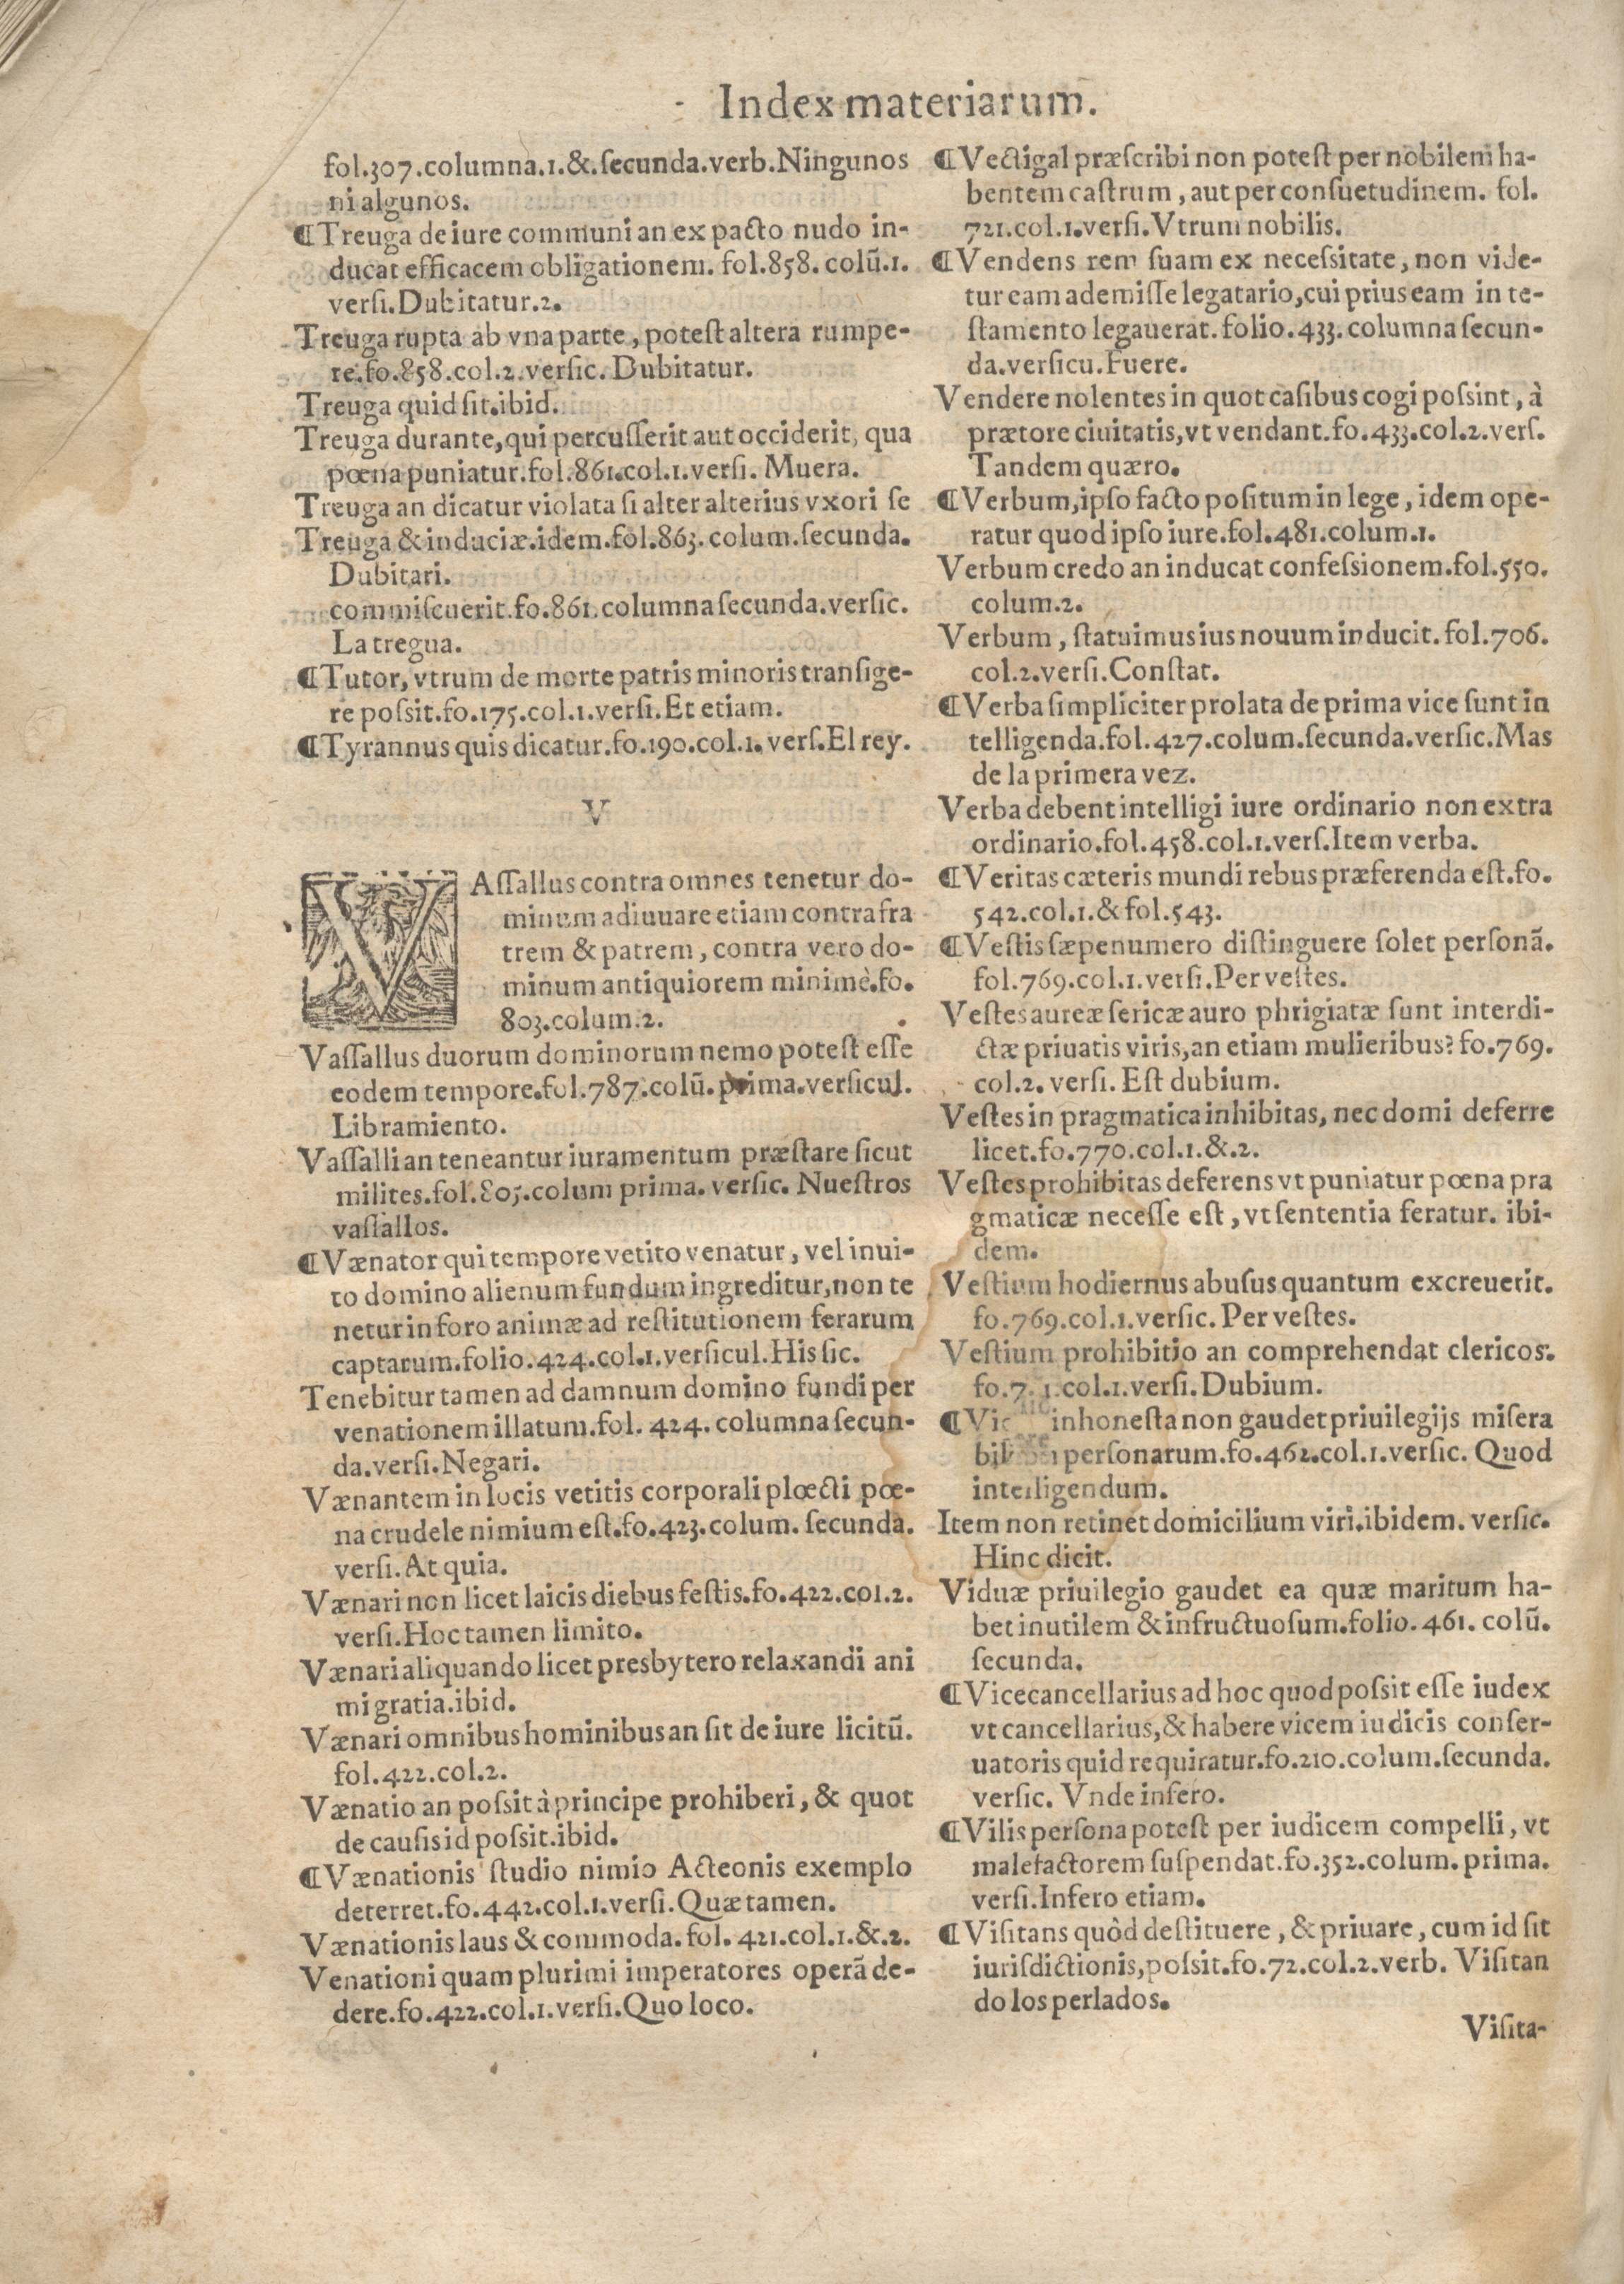 Index materiarum.
fol.307.columna.1.&.ſecunda.verb.Ningunos
ni algunos.
¶Treuga de iure communi an ex pacto nudo in-
ducat efficacem obligationem. fol.858. colū.1.
verſi.Dubitatur.2.
Treuga rupta ab vna parte, poteſt altera rumpe-
re.fo.858.col.2.verſic.Dubitatur.
Treuga quid ſit.ibid.
Treuga durante,qui percuſſerit aut occiderit, qua
pœna puniatur.fol.861.col.1.verſi. Muera.
Treuga an dicatur violata ſi alter alterius vxori ſe
Treuga & induciæ.idem.fol.863.colum.ſecunda.
Dubitari.
commiſcuerit.fo.861.columna ſecunda.verſic.
La tregua.
¶Tutor, vtrum de morte patris minoris tranſige-
re poſsit.fo.175.col.1.verſi.Et etiam.
¶Tyrannus quis dicatur.fo.190.col.1. verſ.El rey.
V
VAſſallus contra omnes tenetur do-
minum adiuuare etiam contra fra
trem & patrem, contra vero do-
minum antiquiorem minimè.fo.
803.colum.2.
Vaſſallus duorum dominorum nemo poteſt eſſe
eodem tempore.fol.787.colū.prima.verſicul.
Libramiento.
Vaſſalli an teneantur iuramentum præſtare ſicut
milites.fol.805.colum prima. verſic. Nueſtros
vaſſallos.
¶Vænator qui tempore vetito venatur, vel inui-
to domino alienum fundum ingreditur,non te
netur in foro animæ ad reſtitutionem ferarum
captarum.folio.424.col.1.verſicul.His ſic.
Tenebitur tamen ad damnum domino fundi per
venationem illatum.fol. 424. columna ſecun-
da.verſi.Negari.
Vænantem in locis vetitis corporali plœcti pœ-
na crudele nimium eſt.fo.423.colum. ſecunda.
verſi.At quia.
Vænari non licet laicis diebus feſtis.fo.422.col.2.
verſi.Hoc tamen limito.
Vænari aliquando licet presbytero relaxandi ani
mi gratia.ibid.
Vænari omnibus hominibus an ſit de iure licitū.
fol.422.col.2.
Vænatio an poſsit à principe prohiberi, & quot
de cauſis id poſsit.ibid.
¶Vænationis ſtudio nimio Acteonis exemplo
deterret.fo.442.col.1.verſi.Quæ tamen.
Vænationis laus & commoda.fol. 421.col.1.&.2.
Venationi quam plurimi imperatores operā de-
dere.fo.422.col.1.verſi.Quo loco.
¶Vectigal præſcribi non poteſt per nobilem ha-
bentem caſtrum, aut per conſuetudinem. fol.
721.col.1.verſi.Vtrum nobilis.
¶Vendens rem ſuam ex neceſsitate, non vide-
tur eam ademiſſe legatario,cui prius eam in te-
ſtamento legauerat.folio.433.columna ſecun-
da.verſicu.Fuere.
Vendere nolentes in quot caſibus cogi poſsint, à
prætore ciuitatis,vt vendant.fo.433.col.2.verſ.
Tandem quæro.
¶Verbum,ipſo facto poſitum in lege, idem ope-
ratur quod ipſo iure.fol.481.colum.1.
Verbum credo an inducat confeſsionem.fol.550.
colum.2.
Verbum, ſtatuimus ius nouum inducit.fol.706.
col.2.verſi.Conſtat.
¶Verba ſimpliciter prolata de prima vice ſunt in
telligenda.fol.427.colum.ſecunda.verſic.Mas
de la primera vez.
Verba debent intelligi iure ordinario non extra
ordinario.fol.458.col.1.verſ.Item verba.
¶Veritas cæteris mundi rebus præferenda eſt.fo.
542.col.1.& fol.543.
¶Veſtis ſæpenumero diſtinguere ſolet perſonā.
fol.769.col.1.verſi.Per veſtes.
Veſtes aureæ ſericæ auro phrigiatæ ſunt interdi-
ctæ priuatis viris,an etiam mulieribus? fo.769.
col.2. verſi. Eſt dubium.
Veſtes in pragmatica inhibitas, nec domi deferre
licet.fo.770.col.1.&.2.
Veſtes prohibitas deferens vt puniatur pœna pra
gmaticæ neceſſe eſt, vt ſententia feratur. ibi-
dem.
Veſtium hodiernus abuſus quantum excreuerit.
fo.769.col.1.verſic. Per veſtes.
Veſtium prohibitio an comprehendat clericos.
col.1.verſi.Dubium.
¶ inhoneſta non gaudet priuilegijs miſera
perſonarum.fo.462.col.1.verſic. Quod
intelligendum.
Item non retinet domicilium viri.ibidem. verſic.
Hinc dicit.
Viduæ priuilegio gaudet ea quæ maritum ha-
bet inutilem & infructuoſum.folio.461. colū.
ſecunda.
¶Vicecancellarius ad hoc quod poſsit eſſe iudex
vt cancellarius,& habere vicem iudicis conſer-
uatoris quid requiratur.fo.210.colum.ſecunda.
verſic. Vnde infero.
¶Vilis perſona poteſt per iudicem compelli, vt
malefactorem ſuſpendat.fo.352.colum. prima.
verſi.Infero etiam.
¶Viſitans quòd deſtituere, & priuare, cum id ſit
iuriſdictionis,poſsit.fo.72.col.2.verb. Viſitan
do los perlados.
Viſita-